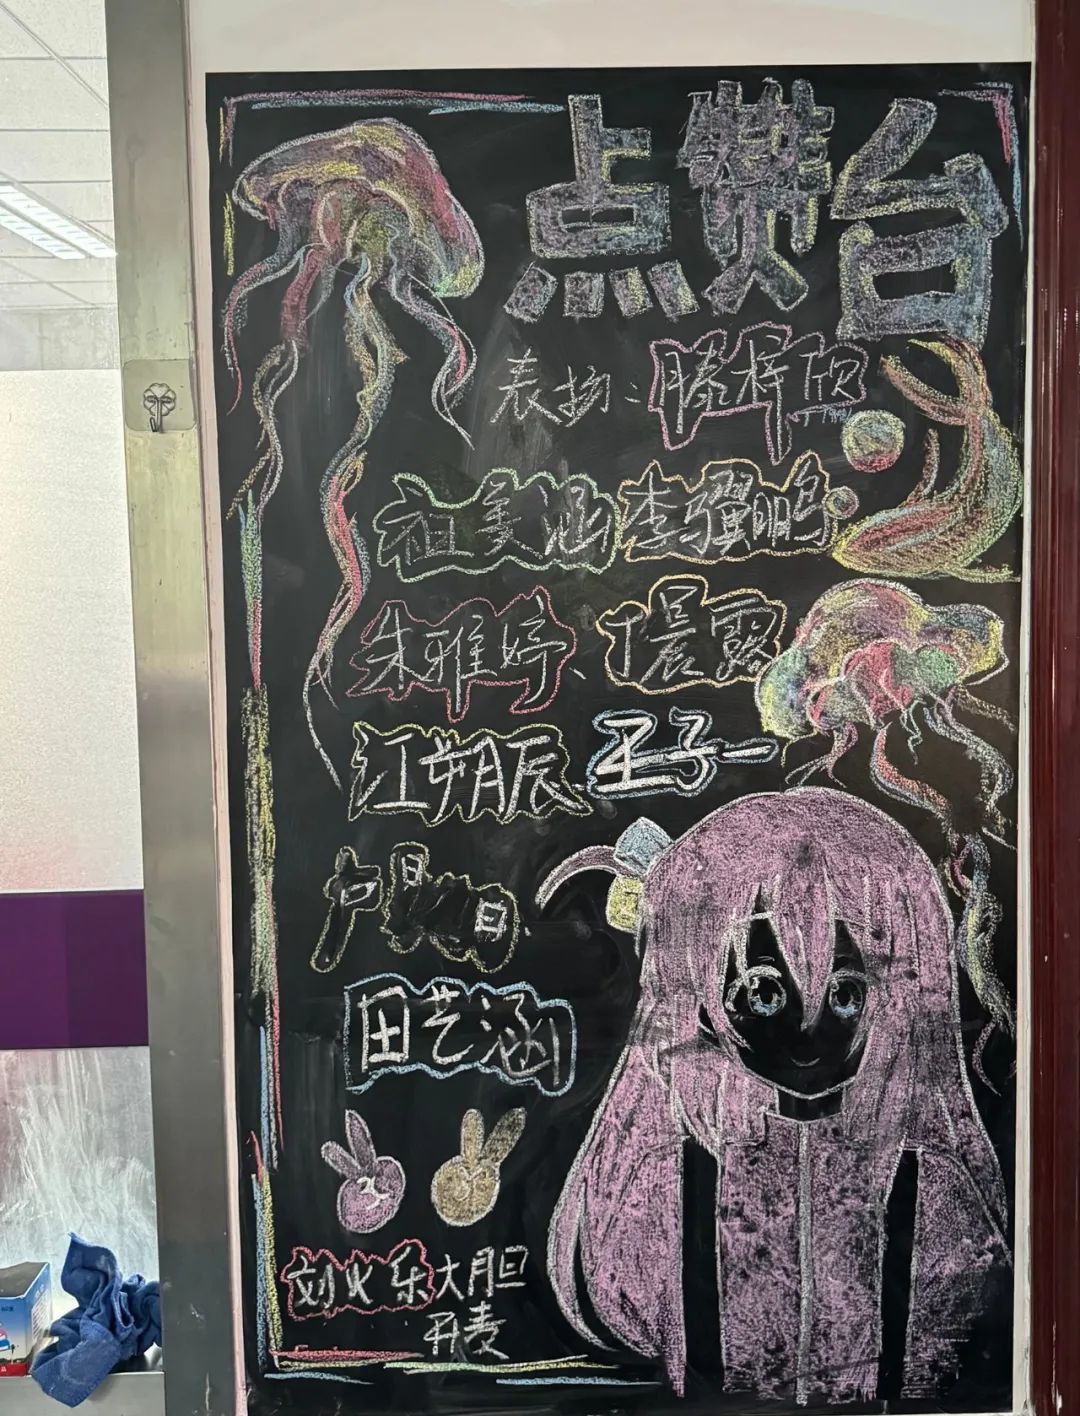 点赞台
表扬：滕梓欣
祖美涵 李强鹏
朱雅婷、丁晨露
江朔辰 王子一
卢
田艺涵
刘火乐大胆
开麦